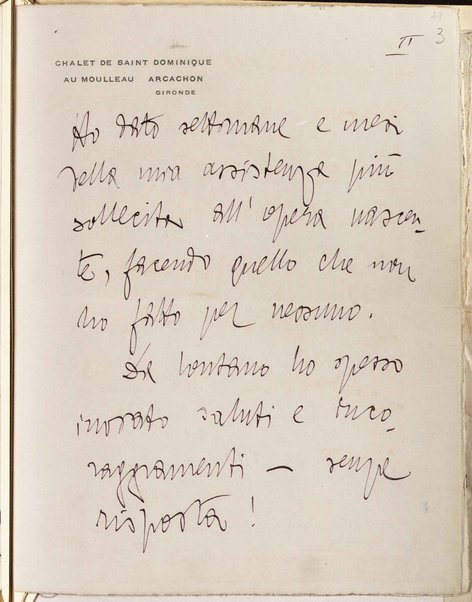 II 3
CHALET DE SAINT DOMINIQUE
AU MOULLEAU ARCACHON
GIRONDE
Ho dato settimane e mesi
della mia assistenza più
sollecita all'opera nascen-
te, facendo quello che non
ho fatto per nessuno.
Da lontano ho spesso
inviato saluti e inco-
raggiamenti — senza
risposta!